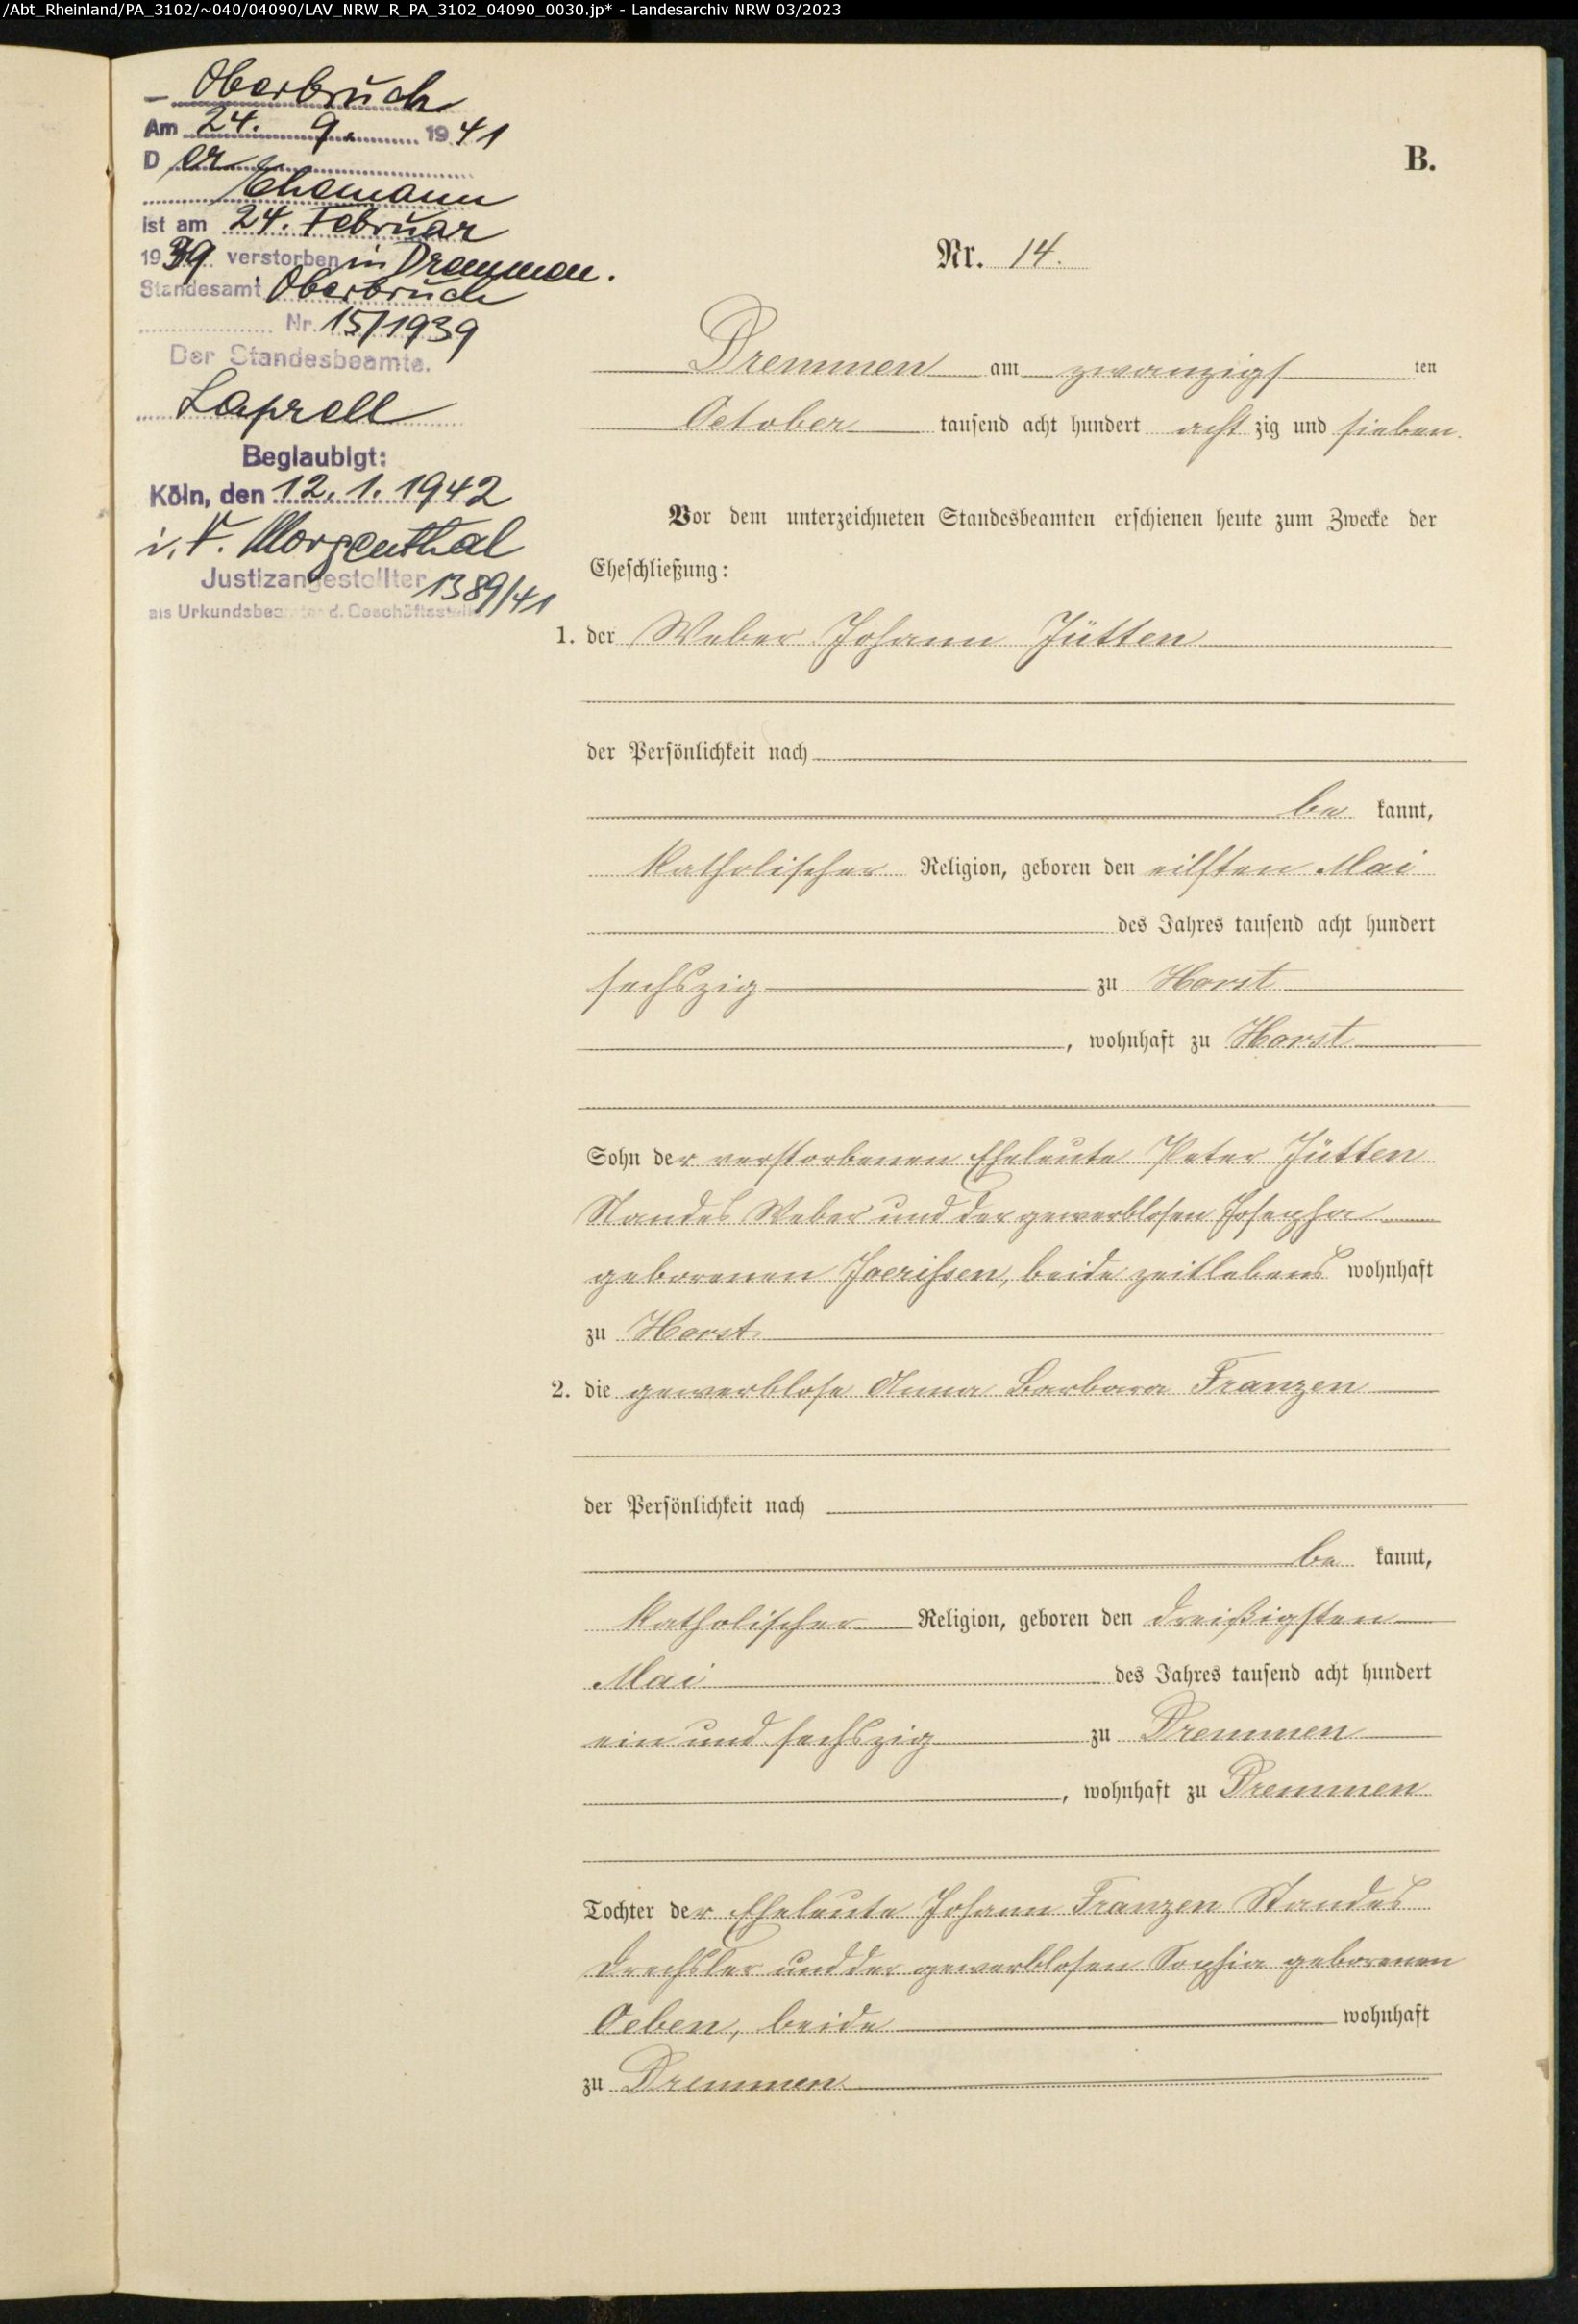 /Abt_Rheinland/PA_3102/~040/04090/LAV_NRW_R_PA_3102_04090_0030.jp* - Landesarchiv NRW 03/2023
Oberbruch
Am 24. 9. 1941
Der
Ehemann
ist am 24. Februar
1939 verstorben in Dremmen.
Standesamt Oberbruch
Nr. 15/1939
Der Standesbeamte.
Laprell
Beglaubigt:
Köln, den 12. 1. 1942
i. V. Morgenthal
Justizangestellter 1389/41
als Urkundsbeamter d. Geschäftsstelle
B.
Nr. 14.
Dremmen am zwanzigsten
October tausend acht hundert achtzig und sieben.
Vor dem unterzeichneten Standesbeamten erschienen heute zum Zwecke der
Eheschließung:
1. der Weber Johann Jütten
der Persönlichkeit nach
be kannt,
katholischer Religion, geboren den eilften Mai
des Jahres tausend acht hundert
sechszig zu Horst
, wohnhaft zu Horst
Sohn der verstorbenen Eheleute Peter Jütten
Standes Weber und der gewerblosen Josepha
geborenen Joerissen, beide zeitlebens wohnhaft
zu Horst
2. die gewerblose Anna Barbara Franzen
der Persönlichkeit nach
be kannt,
katholischer Religion, geboren den dreißigsten
Mai des Jahres tausend acht hundert
ein und sechszig zu Dremmen
, wohnhaft zu Dremmen
Tochter der Eheleute Johann Franzen Standes
Drechsler und der gewerblosen Sophia geborenen
Oeben, beide wohnhaft
zu Dremmen